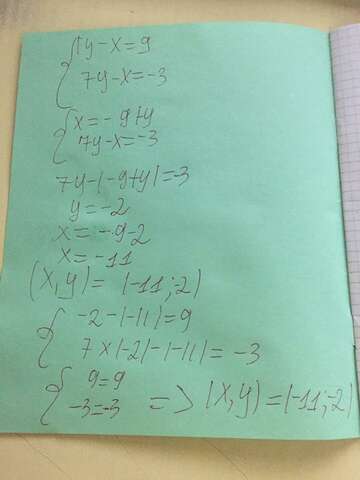 { 1y-x=9
7y-x=-3
{ x=-9+y
7y-x=-3
7y-(-9+y)=-3
y=-2
x=-9-2
x=-11
(x,y)=(-11;-2)
{ -2-(-11)=9
7×(-2)-(-11)=-3
{ 9=9
-3=-3 => (x,y)=(-11;-2)